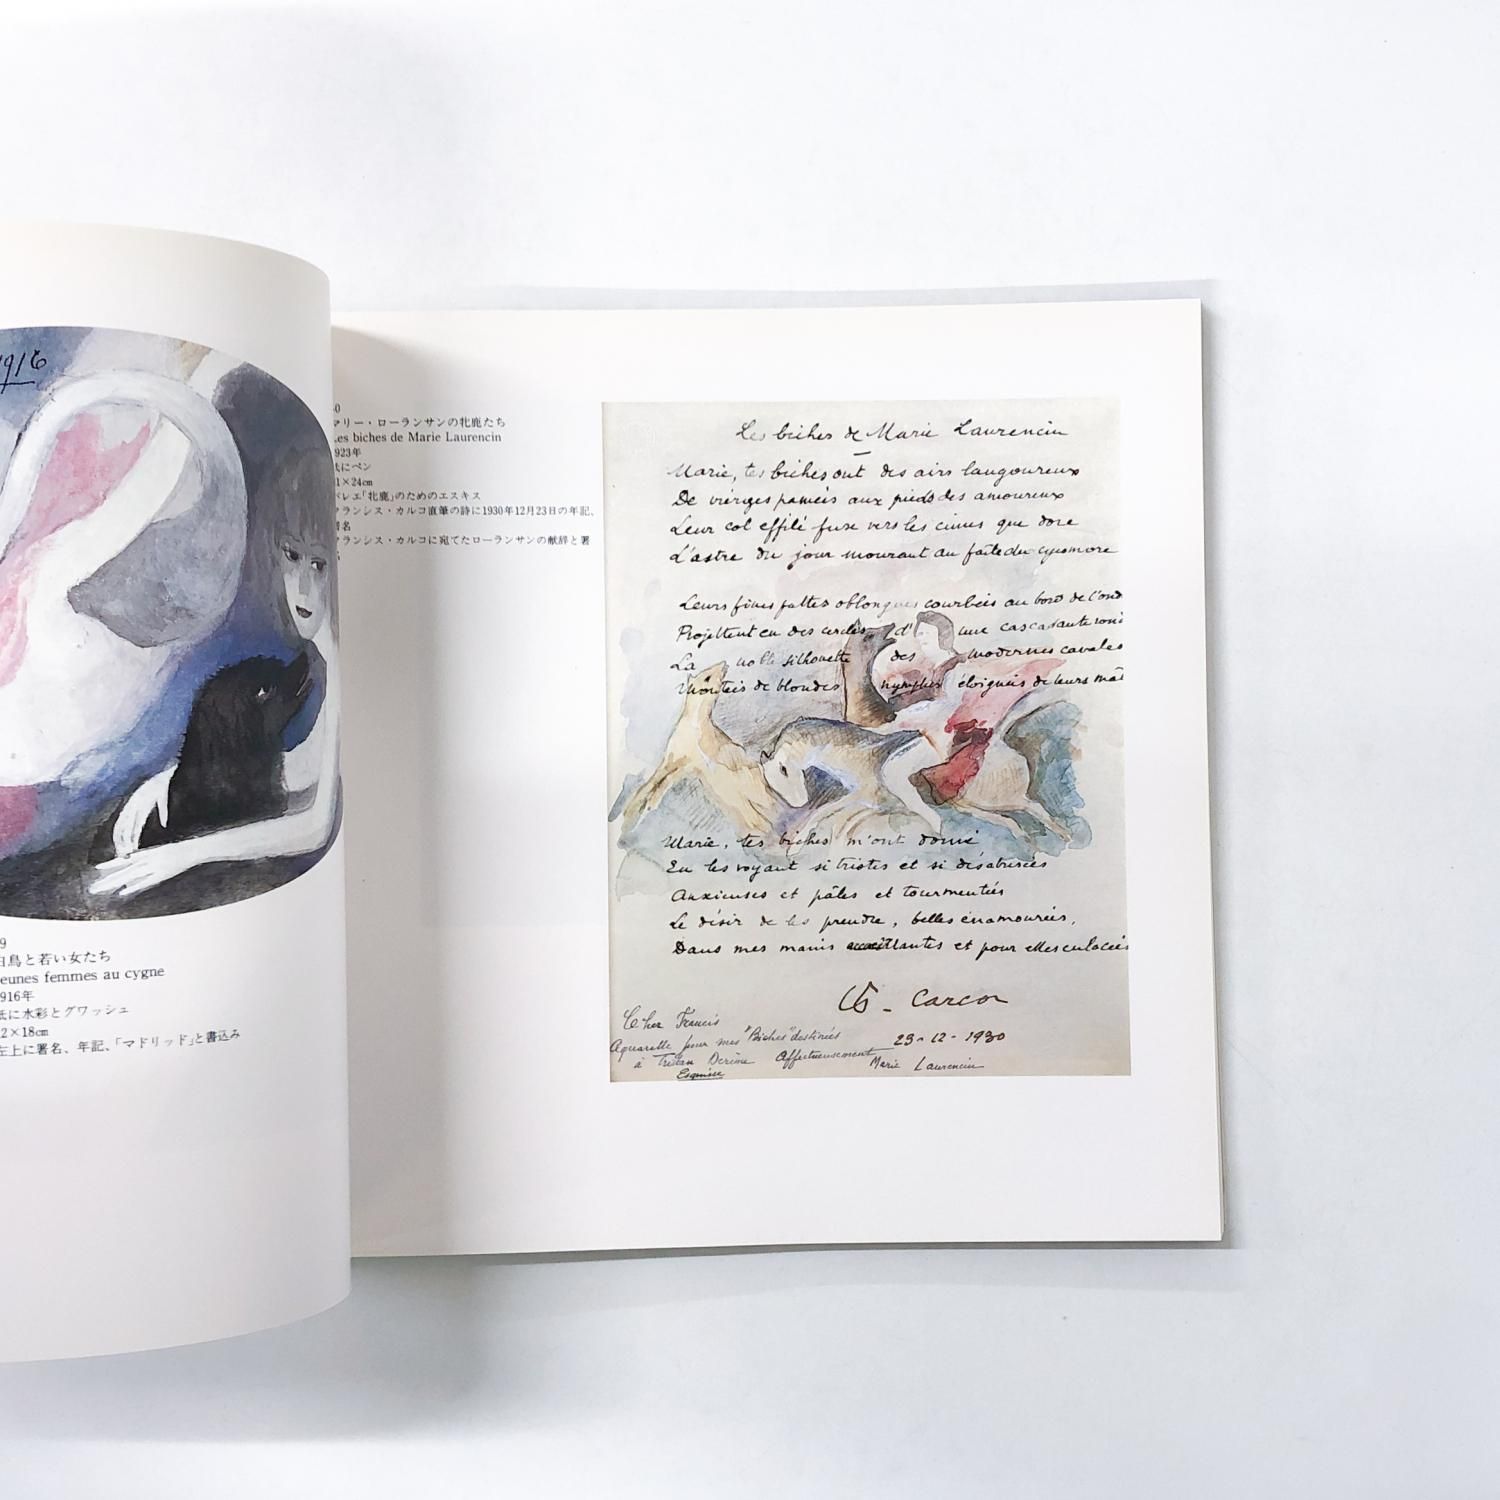 1916
9
白鳥と若い女たち
eunes femmes au cygne
916年
紙に水彩とグワッシュ
2×18cm
左上に署名、年記、「マドリッド」と書込み
0
マリー・ローランサンの牝鹿たち
Les biches de Marie Laurencin
923年
紙にペン
1×24cm
バレエ「牝鹿」のためのエスキス
フランシス・カルコ直筆の詩に1930年12月23日の年記、
署名
フランシス・カルコに宛てたローランサンの献辞と署
Les biches de Marie Laurencin
Marie, tes biches ont des airs langoureux
De vierges pamées aux pieds des amoureux
Leur col effilé fuse vers les cimes que dore
L'astre du jour mourant au faîte du sycomore
Leurs fines pattes oblongues courbées au bord de l'ond
Projettent en des cercles d'une cascadante rond
La noble silhouette des modernes cavales
Montées de blondes nymphes éloignées de leurs mâl
Marie, tes biches m'ont donné
En les voyant si tristes et si désabusées
Anxieuses et pâles et tourmentées
Le désir de les prendre, belles énamourées,
Dans mes mains et pour elles
Carco
23-12-1930
Cher Francis
Aquarelle pour mes "Biches" destinées
à Tristan Derème Affectueusement
Esquisse Marie Laurencin